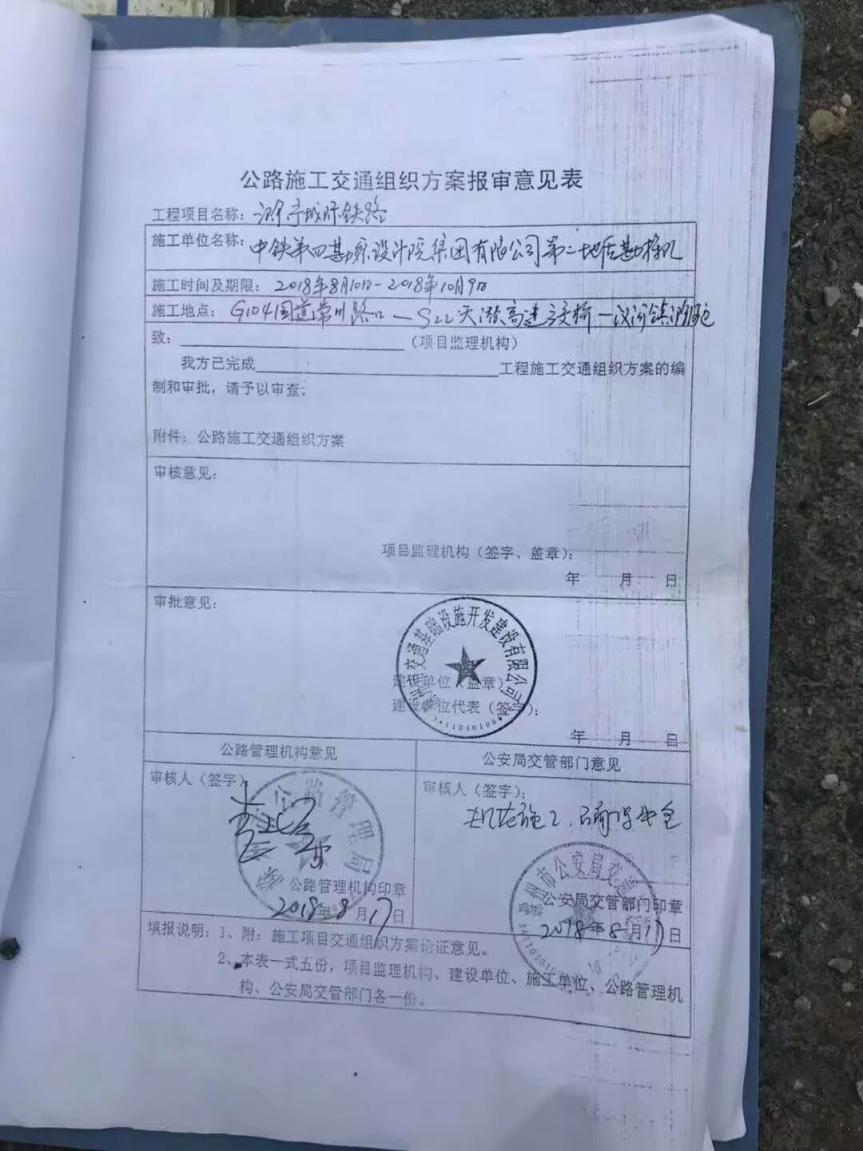 公路施工交通组织方案报审意见表
工程项目名称：滁宁城际铁路
施工单位名称：中铁第四勘察设计院集团有限公司第二地质勘探队
施工时间及期限：2018年8月10日-2018年10月9日
施工地点：G104国道常州路口—S22天潜高速交桥—汊河镇
致：（项目监理机构）
我方已完成 工程施工交通组织方案的编
制和审批，请予以审查。
附件：公路施工交通组织方案
审核意见：
项目监理机构（签字、盖章）：
年 月 日
审批意见：
滁州市交通基础设施开发建设有限公司
建设单位（盖章）
建设单位代表（签字）：
年 月 日
公路管理机构意见 公安局交管部门意见
审核人（签字） 审核人（签字）：
施工，确保安全
公路管理局
滁州市公安局交通
公路管理机构印章 公安局交管部门印章
2018年8月17日 2018年8月17日
填报说明：1、附：施工项目交通组织方案论证意见。
2、本表一式五份，项目监理机构、建设单位、施工单位、公路管理机
构、公安局交管部门各一份。